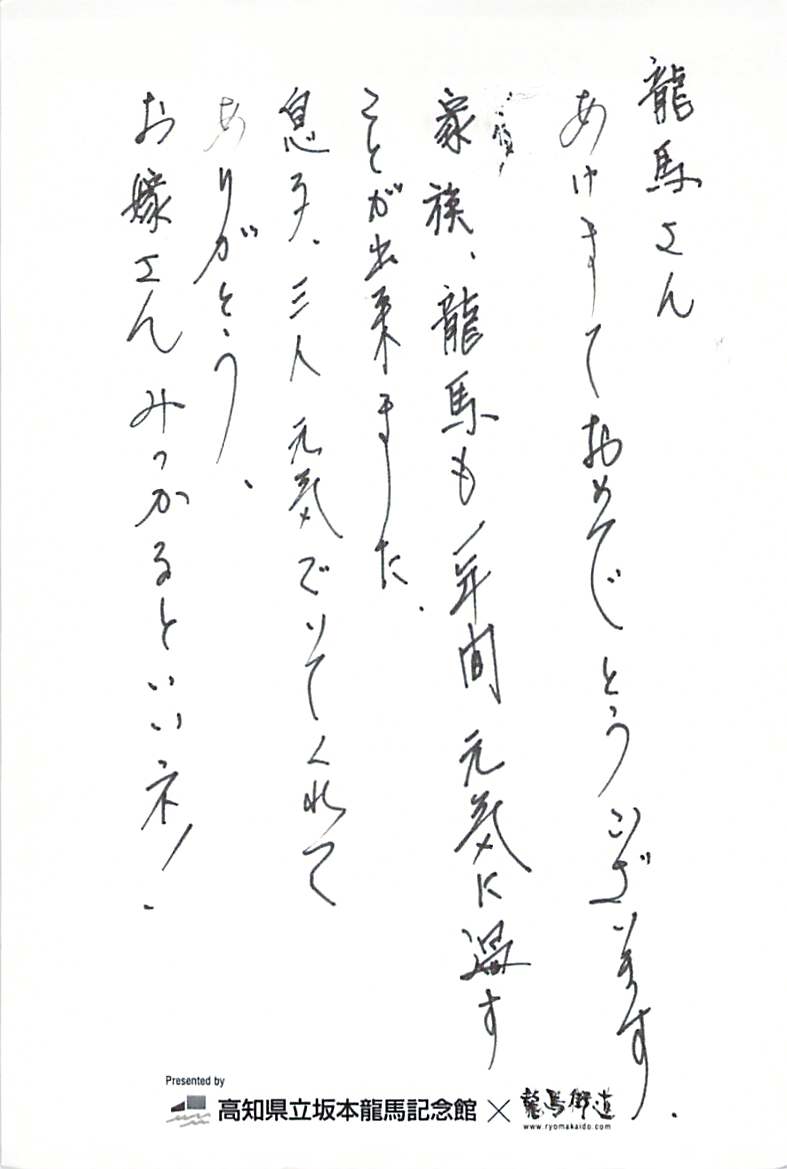 龍馬さん
あけましておめでとうございます.
家族、龍馬も一年間元気に過す
ことが出来ました.
息子、三人元気でいてくれて
ありがとう、
お嫁さんみつかるといいネ!
Presented by
高知県立坂本龍馬記念館×龍馬街道
www.ryomakaido.com